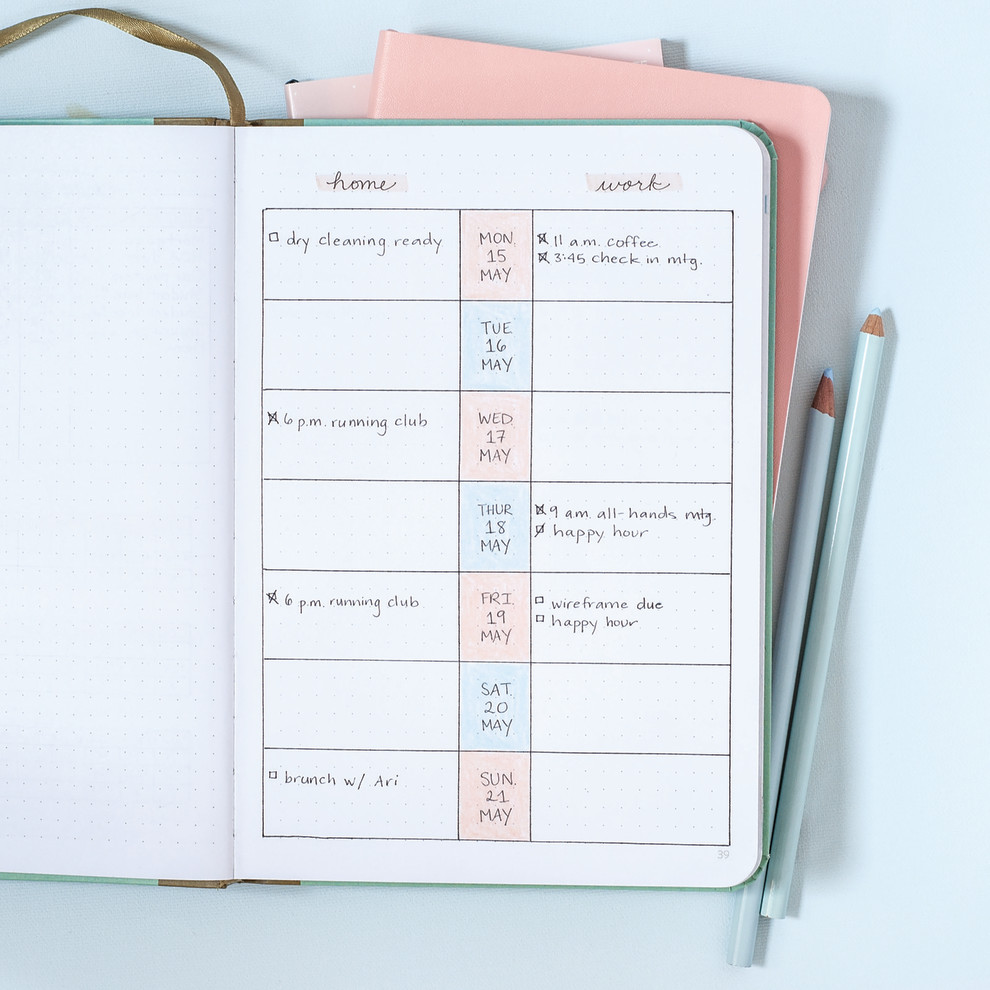 home
work
dry cleaning ready
MON.
15
MAY
11 a.m. coffee
3:45 check in mtg.
TUE
16
MAY
6 p.m. running club
WED.
17
MAY
THUR
18
MAY
9 am. all-hands mtg.
happy hour
6 p.m. running club
FRI.
19
MAY
wireframe due
happy hour
SAT.
20
MAY
brunch w/ Ari
SUN.
21
MAY
39